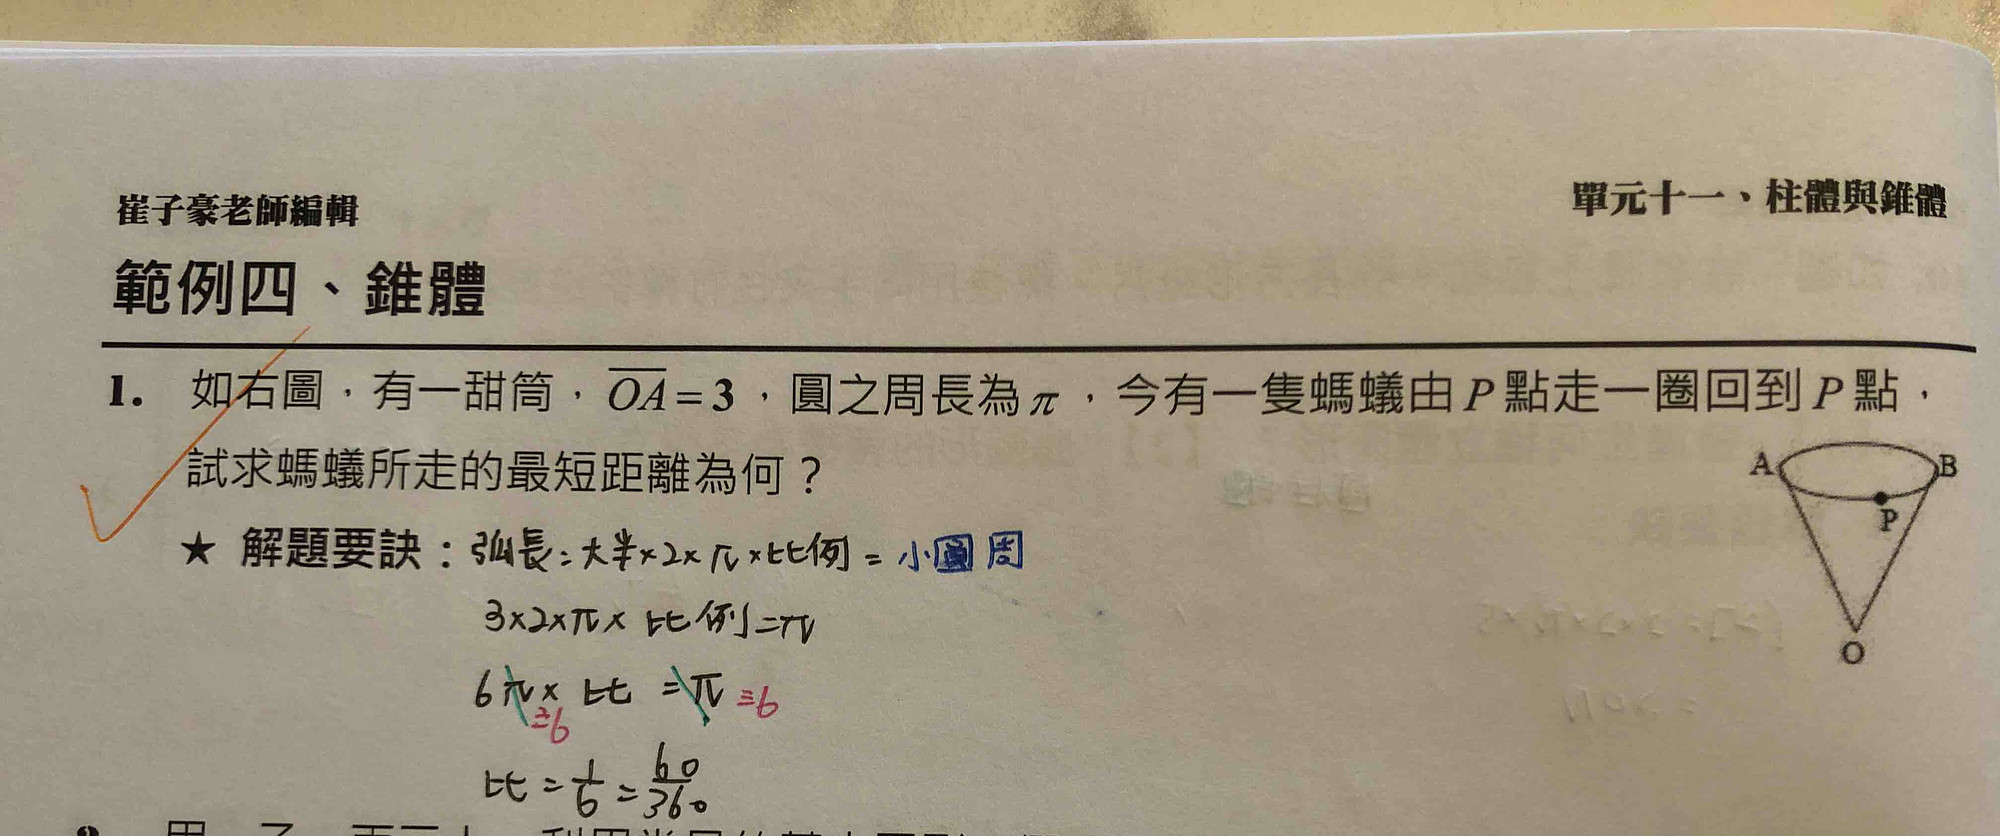 崔子豪老師編輯
單元十一、柱體與錐體
範例四、錐體
1. 如右圖，有一甜筒，OA=3，圓之周長為π，今有一隻螞蟻由P點走一圈回到P點，
試求螞蟻所走的最短距離為何？
A
B
P
O
★ 解題要訣：弧長=大半×2×π×比例=小圓周
3×2×π×比例=π
6π×比=π
÷6 ÷6
比=1/6=60/360